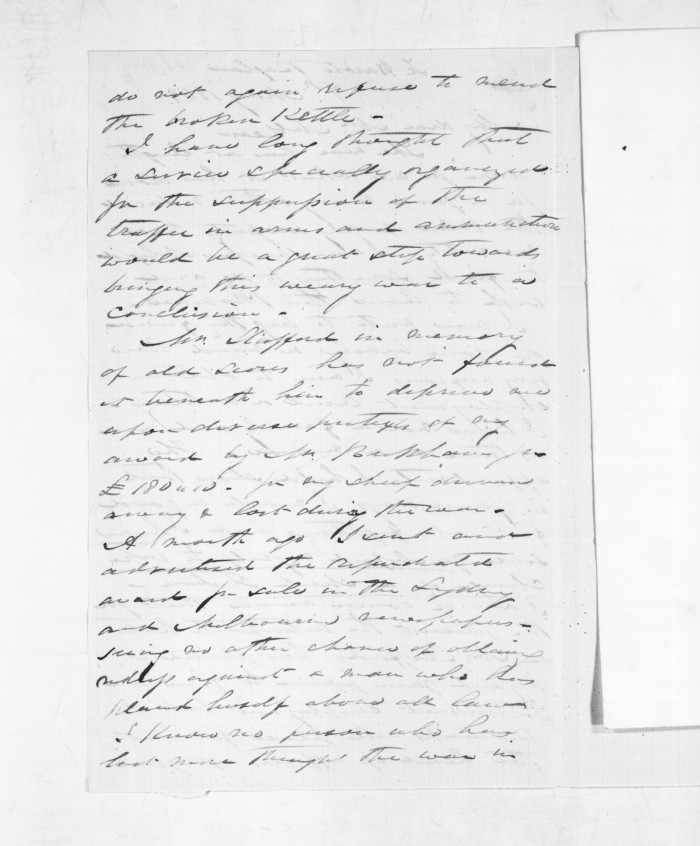 do not again refuse to mend
the broken Kettle -
I have long thought that
a service specially organized
for the suppression of the
traffic in arms and ammunition
would be a great step towards
bringing this weary war to a
conclusion -
Mr. Stafford in memory
of old scores has not found
it beneath him to deprive me
upon diverse pretexts of my
award by Mr. Beckham for
£ 180 for my sheep driven
away & lost during the war -
A month ago I sent and
advertised the repudiated
award for sale in the Sydney
and Melbourne newspapers -
seeing no other chance of obtaining
redress against a man who thus
placed himself above all laws
I Know no person who has
lost more through the war in